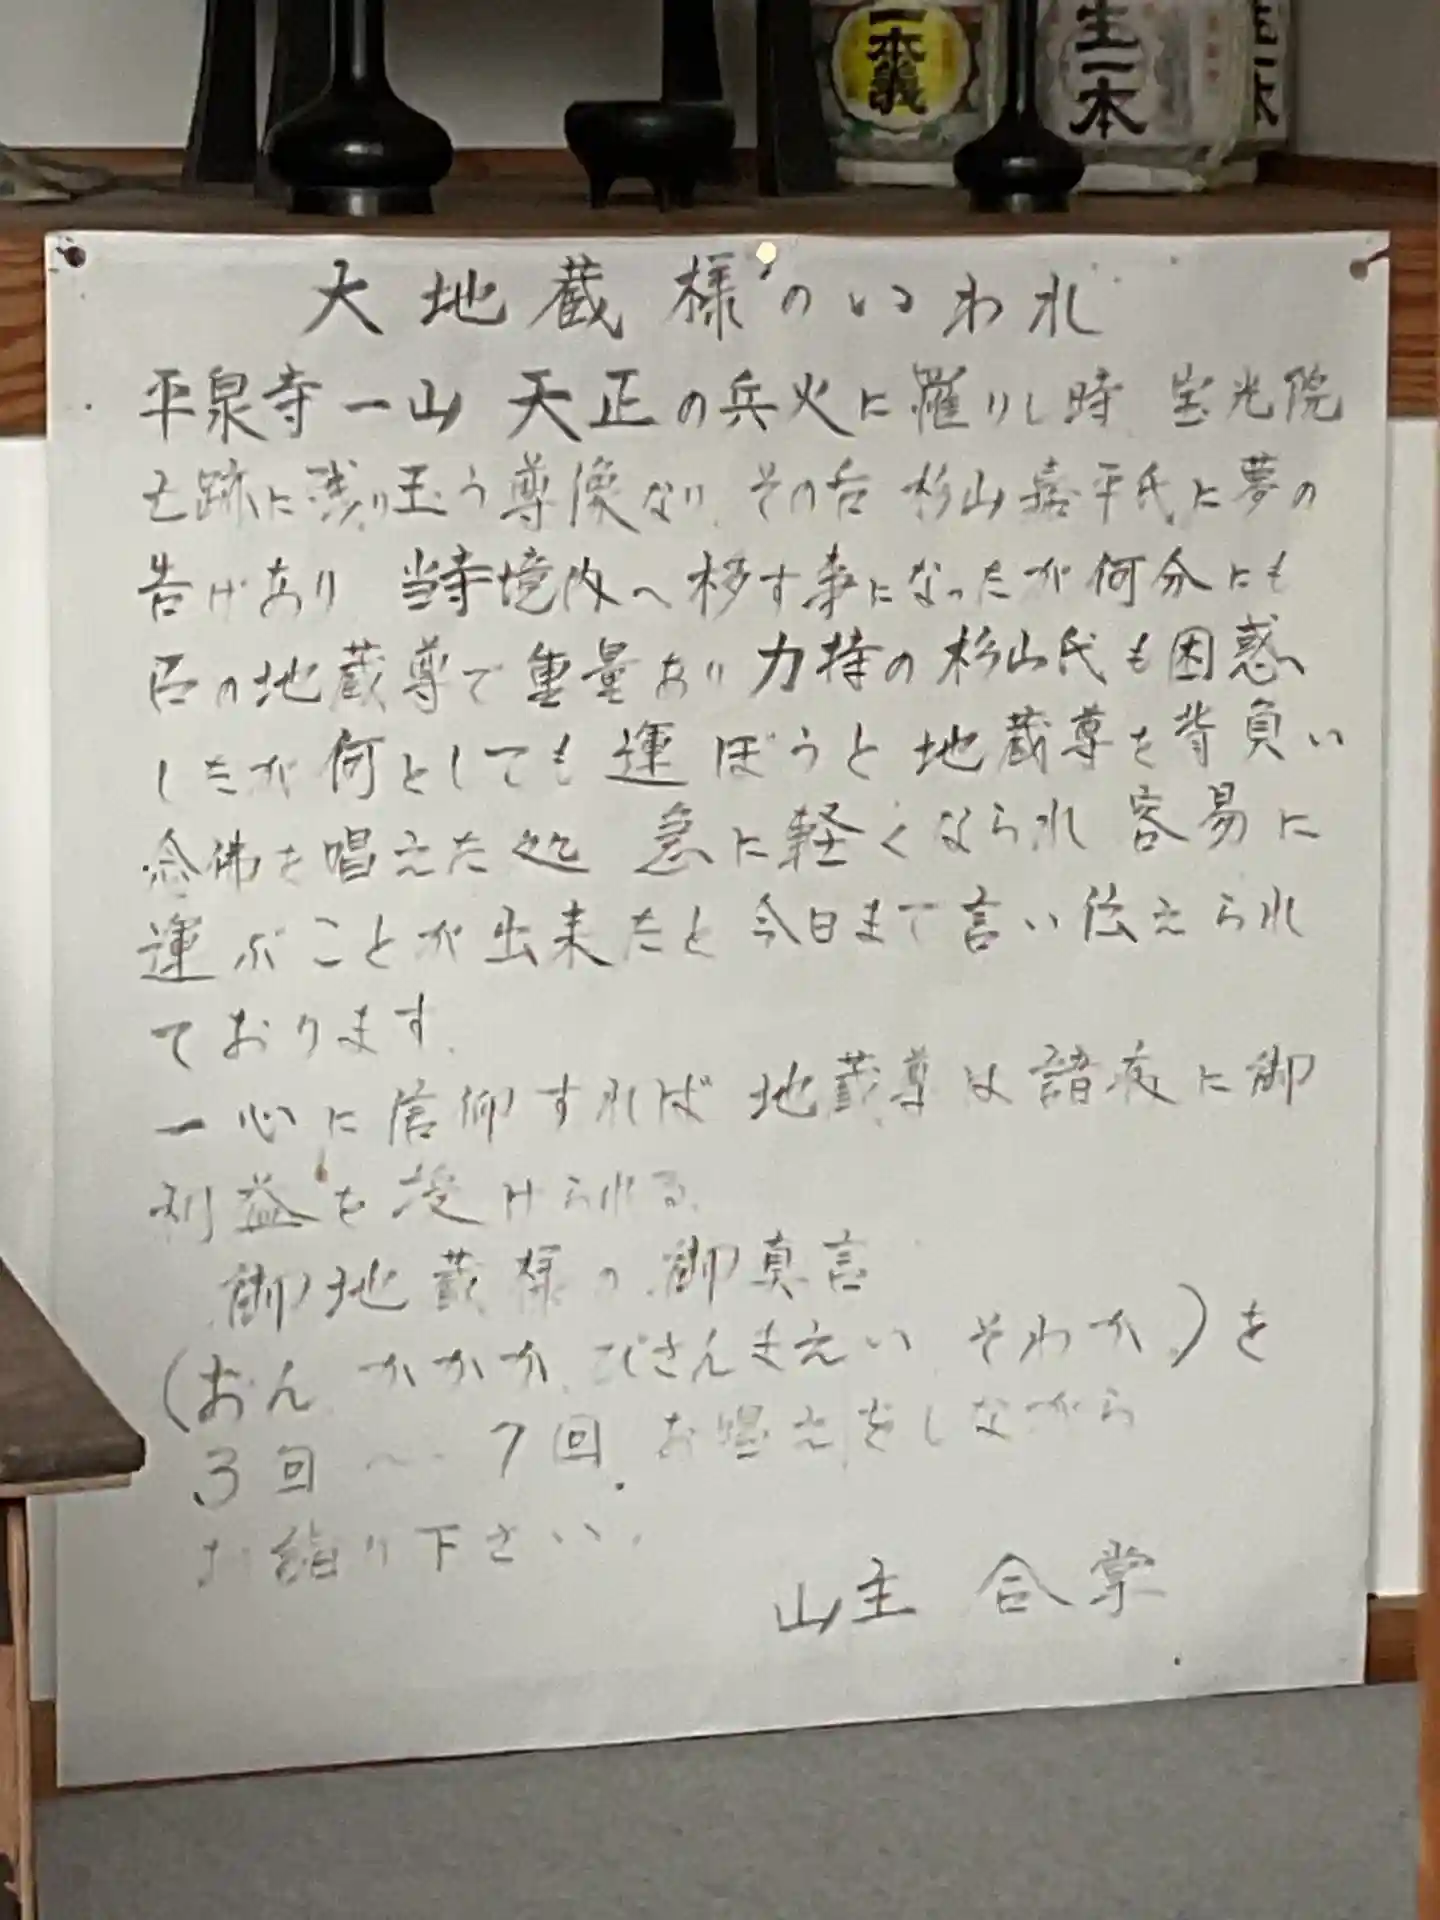 一本義
生一本
生一本
大地蔵様のいわれ
平泉寺一山 天正の兵火に罹りし時 宝光院
跡に残り玉う尊像なり その后 杉山嘉平氏に夢の
告げあり 当寺境内へ移す事になったが何分にも
石の地蔵尊で重量あり力持の杉山氏も困惑
したが何としても運ぼうと地蔵尊を背負い
念佛を唱えた処 急に軽くなられ容易に
運ぶことが出来たと今日まで言い伝えられ
ております.
一心に信仰すれば地蔵尊は諸病に御
利益を授けられる.
御地蔵様の御真言
(おん かかか びさんまえい そわか)を
3回〜7回. お唱えをしながら
お詣り下さい.
山主 合掌